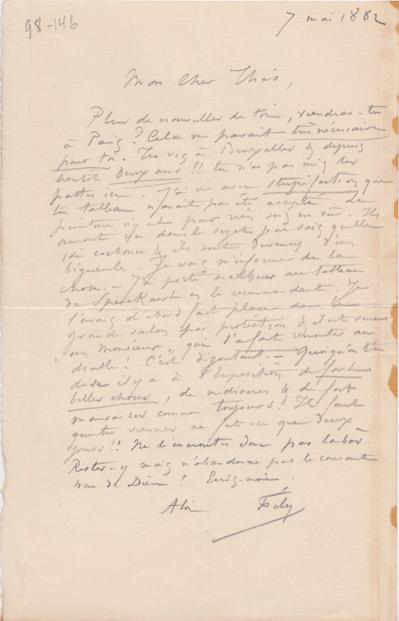 98-146
7 mai 1882
Mon cher Théo,
Plus de nouvelles de toi, viendras-tu
à Paris? Cela me parait très nécessaire
pour toi. Tu vis à Bruxelles depuis
bientôt deux ans!! tu n'as pas mis les
pattes ici. J'ai vu avec stupéfaction que
ton tableau n'avait pas été accepté. La
peinture n'y est pour rien sois en sûr. Ils
auront vu dans le sujet je ne sais quelle
idée & ils sont devenus d'un
bigueule. Je vais m'informer de la
chose. J'ai porté malheur au tableau
de Speekaert en le recommandant. Je
l'avais d'abord fait placer dans le
grand salon par protection & il est venu
"un Monsieur" qui l'a fait remonter au
diable! C'est dégoutant. Quoiqu'on en
dise il y a à l'Exposition de fort
belles choses, de médiocres & de fort
mauvaises comme toujours! Il faut
que tu viennes ne fut-ce que deux
jours!! Ne t' donc pas là bas.
Restes-y mais n'abandonne pas le courant
nom de Dieu! Ecris-moi.
A toi Fély